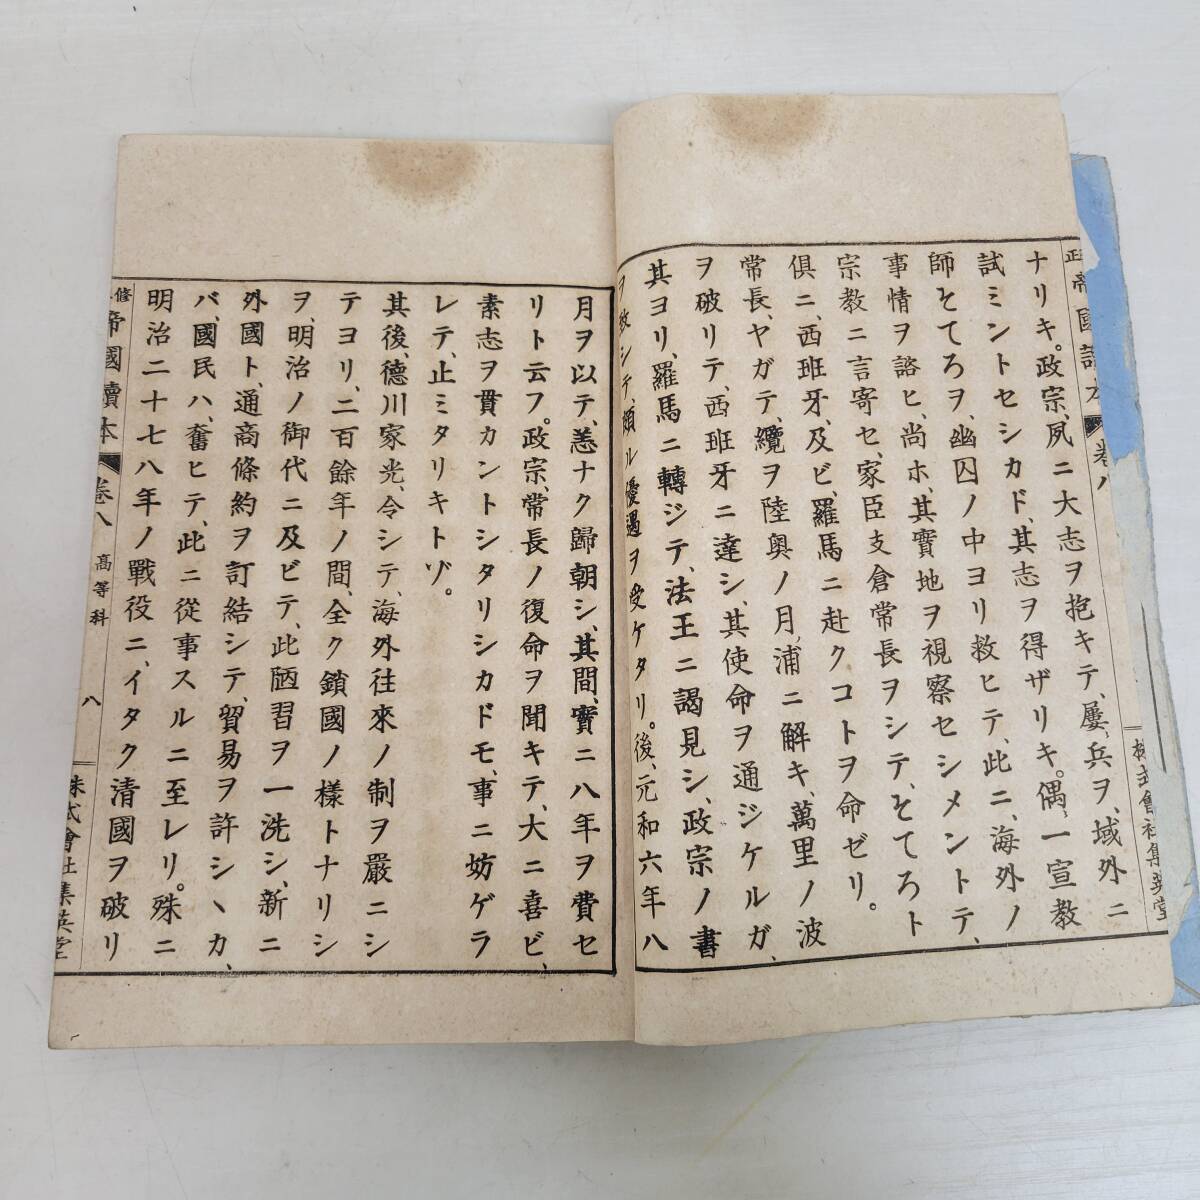 正帝國讀本 巻八 株式會社集英堂
ナリキ。政宗、夙ニ大志ヲ抱キテ、屢、兵ヲ、域外ニ
試ミントセシカド、其志ヲ得ザリキ。偶、一宣教
師そてろヲ、幽囚ノ中ヨリ救ヒテ、此ニ、海外ノ
事情ヲ諮ヒ、尚ホ、其實地ヲ視察セシメントテ、
宗教ニ言寄セ、家臣支倉常長ヲシテ、そてろト
俱ニ、西班牙、及ビ、羅馬ニ赴クコトヲ命ゼリ。
常長、ヤガテ、纜ヲ陸奥ノ月ノ浦ニ解キ、萬里ノ波
ヲ破リテ、西班牙ニ達シ、其使命ヲ通ジケルガ、
其ヨリ、羅馬ニ轉ジテ、法王ニ謁見シ、政宗ノ書
ヲ致シテ、頗ル優遇ヲ受ケタリ。後、元和六年八
月ヲ以テ、恙ナク歸朝シ、其間、實ニ八年ヲ費セ
リト云フ。政宗、常長ノ復命ヲ聞キテ、大ニ喜ビ、
素志ヲ貫カントシタリシカドモ、事ニ妨ゲラ
レテ、止ミタリキトゾ。
其後、德川家光、令シテ、海外往來ノ制ヲ嚴ニシ
テヨリ、二百餘年ノ間、全ク鎖國ノ樣トナリシ
ヲ、明治ノ御代ニ及ビテ、此陋習ヲ一洗シ、新ニ
外國ト、通商條約ヲ訂結シテ、貿易ヲ許シヽカ
バ、國民ハ、奮ヒテ、此ニ從事スルニ至レリ。殊ニ
明治二十七八年ノ戰役ニ、イタク清國ヲ破リ
修帝國讀本 巻八 高等科 八 株式會社集英堂